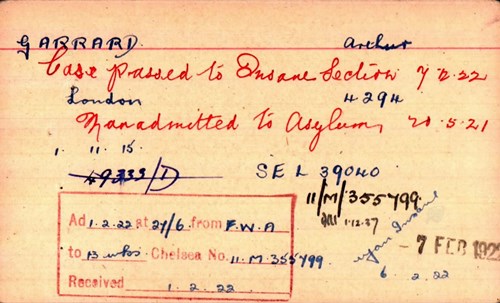 GARRARD. Arthur
Case passed to Insane Section 7.2.22
London 4294
Man admitted to Asylum, 20.5.21
1. 11. 15.
49333/D SEL 39040
11/M/355799.
1.12.37
Ad 1.2.22 at 27/6 from F.W.A
to 13 wks Chelsea No. 11.M.355799
Received 1.2.22
Insane
- 7 FEB 192
6.2.22